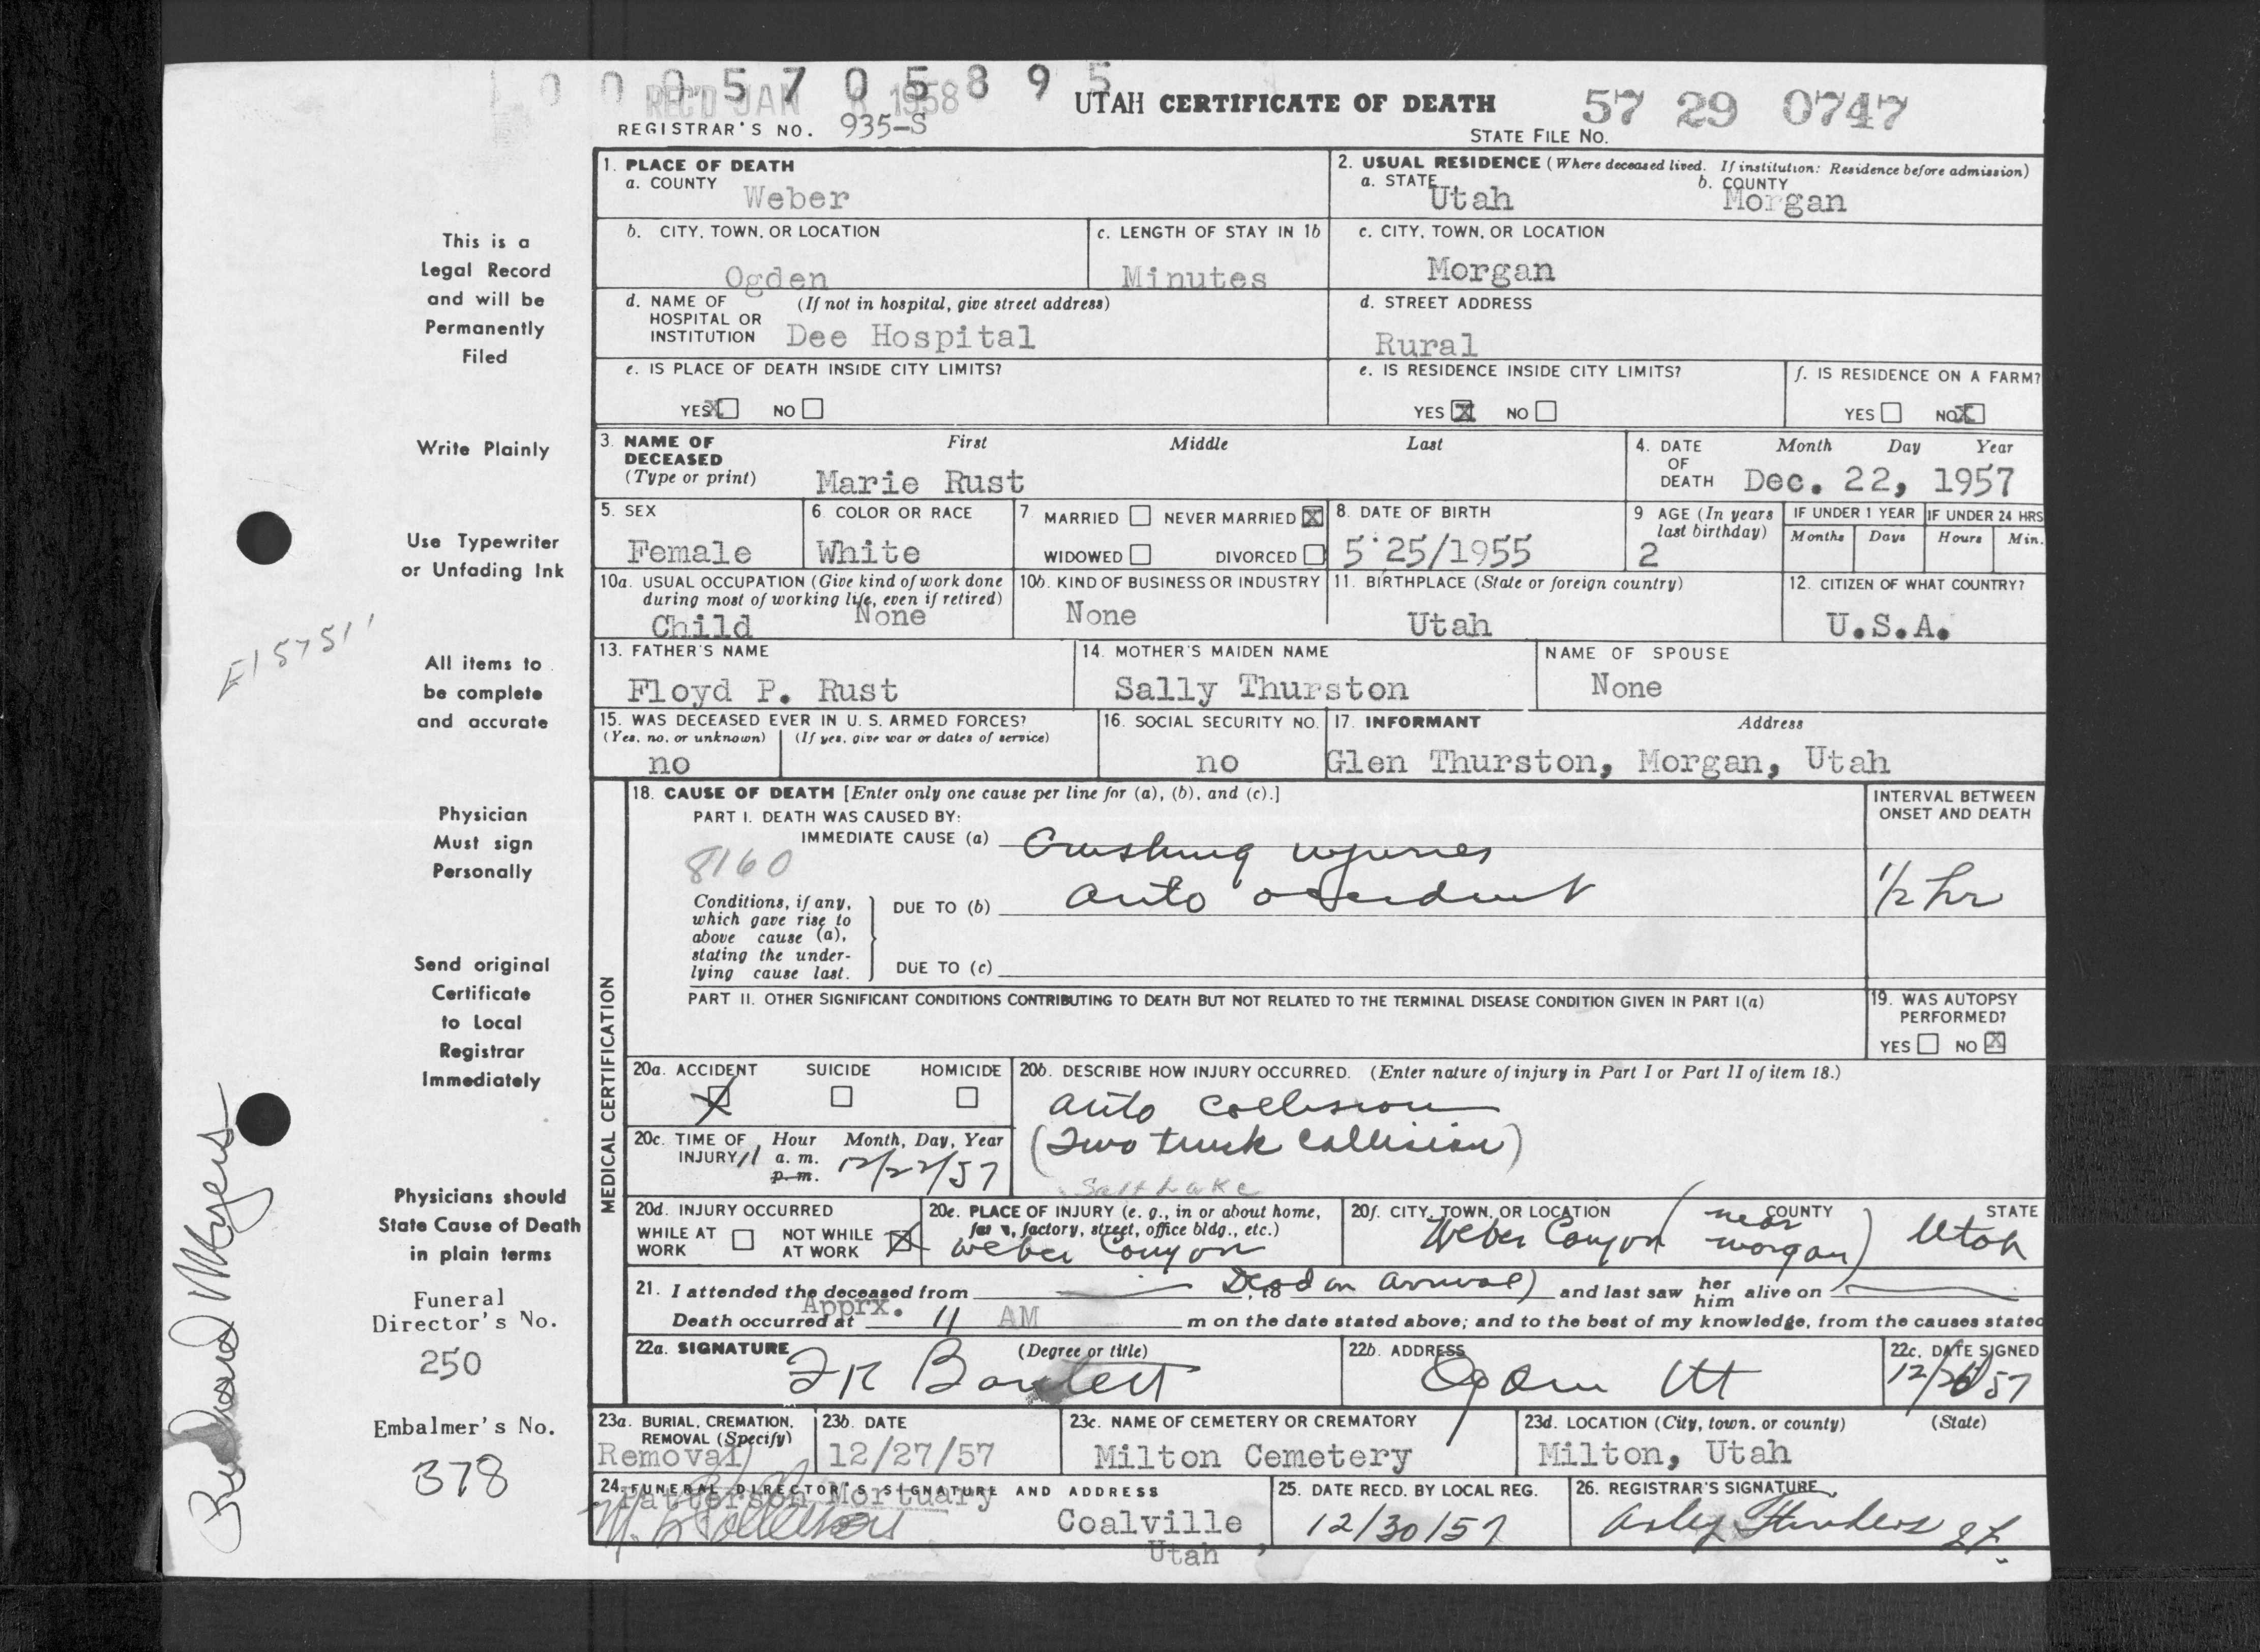 0 0 0 5 7 0 5 8 9 5
REC'D JAN 1958
UTAH CERTIFICATE OF DEATH
57 29 0747
REGISTRAR'S NO. 935-S
STATE FILE NO.
1. PLACE OF DEATH
a. COUNTY Weber
2. USUAL RESIDENCE (Where deceased lived. If institution: Residence before admission)
a. STATE Utah b. COUNTY Morgan
b. CITY, TOWN, OR LOCATION Ogden
c. LENGTH OF STAY IN 1b Minutes
c. CITY, TOWN, OR LOCATION Morgan
d. NAME OF HOSPITAL OR INSTITUTION (If not in hospital, give street address) Dee Hospital
d. STREET ADDRESS Rural
e. IS PLACE OF DEATH INSIDE CITY LIMITS?
YES X NO
e. IS RESIDENCE INSIDE CITY LIMITS?
YES X NO
f. IS RESIDENCE ON A FARM?
YES NO X
3. NAME OF DECEASED (Type or print) First Middle Last
Marie Rust
4. DATE OF DEATH Month Day Year
Dec. 22, 1957
5. SEX Female
6. COLOR OR RACE White
7. MARRIED NEVER MARRIED X
WIDOWED DIVORCED
8. DATE OF BIRTH 5 25/1955
9 AGE (In years last birthday) 2
IF UNDER 1 YEAR Months Days
IF UNDER 24 HRS Hours Min.
10a. USUAL OCCUPATION (Give kind of work done during most of working life, even if retired)
Child None
10b. KIND OF BUSINESS OR INDUSTRY
None
11. BIRTHPLACE (State or foreign country)
Utah
12. CITIZEN OF WHAT COUNTRY?
U.S.A.
13. FATHER'S NAME
Floyd P. Rust
14. MOTHER'S MAIDEN NAME
Sally Thurston
NAME OF SPOUSE
None
15. WAS DECEASED EVER IN U. S. ARMED FORCES?
(Yes, no, or unknown) (If yes, give war or dates of service)
no
16. SOCIAL SECURITY NO.
no
17. INFORMANT Address
Glen Thurston, Morgan, Utah
MEDICAL CERTIFICATION
18. CAUSE OF DEATH [Enter only one cause per line for (a), (b), and (c).]
INTERVAL BETWEEN ONSET AND DEATH
PART I. DEATH WAS CAUSED BY:
IMMEDIATE CAUSE (a) Crushing injuries
8160
Conditions, if any, which gave rise to above cause (a), stating the underlying cause last.
DUE TO (b) auto accident
1/2 hr
DUE TO (c)
PART II. OTHER SIGNIFICANT CONDITIONS CONTRIBUTING TO DEATH BUT NOT RELATED TO THE TERMINAL DISEASE CONDITION GIVEN IN PART I(a)
19. WAS AUTOPSY PERFORMED?
YES NO X
20a. ACCIDENT X SUICIDE HOMICIDE
20b. DESCRIBE HOW INJURY OCCURRED. (Enter nature of injury in Part I or Part II of item 18.)
auto Collision
(Two truck Collision)
20c. TIME OF INJURY Hour Month, Day, Year
11 a. m. p. m. 12/22/57
Salt Lake
20d. INJURY OCCURRED
WHILE AT WORK NOT WHILE AT WORK X
20e. PLACE OF INJURY (e. g., in or about home, farm, factory, street, office bldg., etc.)
Weber Canyon
20f. CITY, TOWN, OR LOCATION COUNTY STATE
Weber Canyon (near Morgan) Utah
21. I attended the deceased from Dead on arrival) and last saw her him alive on
Death occurred at Apprx. 11 AM m on the date stated above; and to the best of my knowledge, from the causes stated
22a. SIGNATURE (Degree or title)
F R Bartlett
22b. ADDRESS
Ogden Ut
22c. DATE SIGNED
12/26/57
23a. BURIAL, CREMATION, REMOVAL (Specify)
Removal
23b. DATE
12/27/57
23c. NAME OF CEMETERY OR CREMATORY
Milton Cemetery
23d. LOCATION (City, town, or county) (State)
Milton, Utah
24. FUNERAL DIRECTOR'S SIGNATURE AND ADDRESS
Patterson Mortuary
Coalville,
Utah
25. DATE RECD. BY LOCAL REG.
12/30/57
26. REGISTRAR'S SIGNATURE
This is a
Legal Record
and will be
Permanently
Filed
Write Plainly
Use Typewriter
or Unfading Ink
F157511
All items to
be complete
and accurate
Physician
Must sign
Personally
Send original
Certificate
to Local
Registrar
Immediately
Physicians should
State Cause of Death
in plain terms
Funeral
Director's No.
250
Embalmer's No.
378
Richard Myers